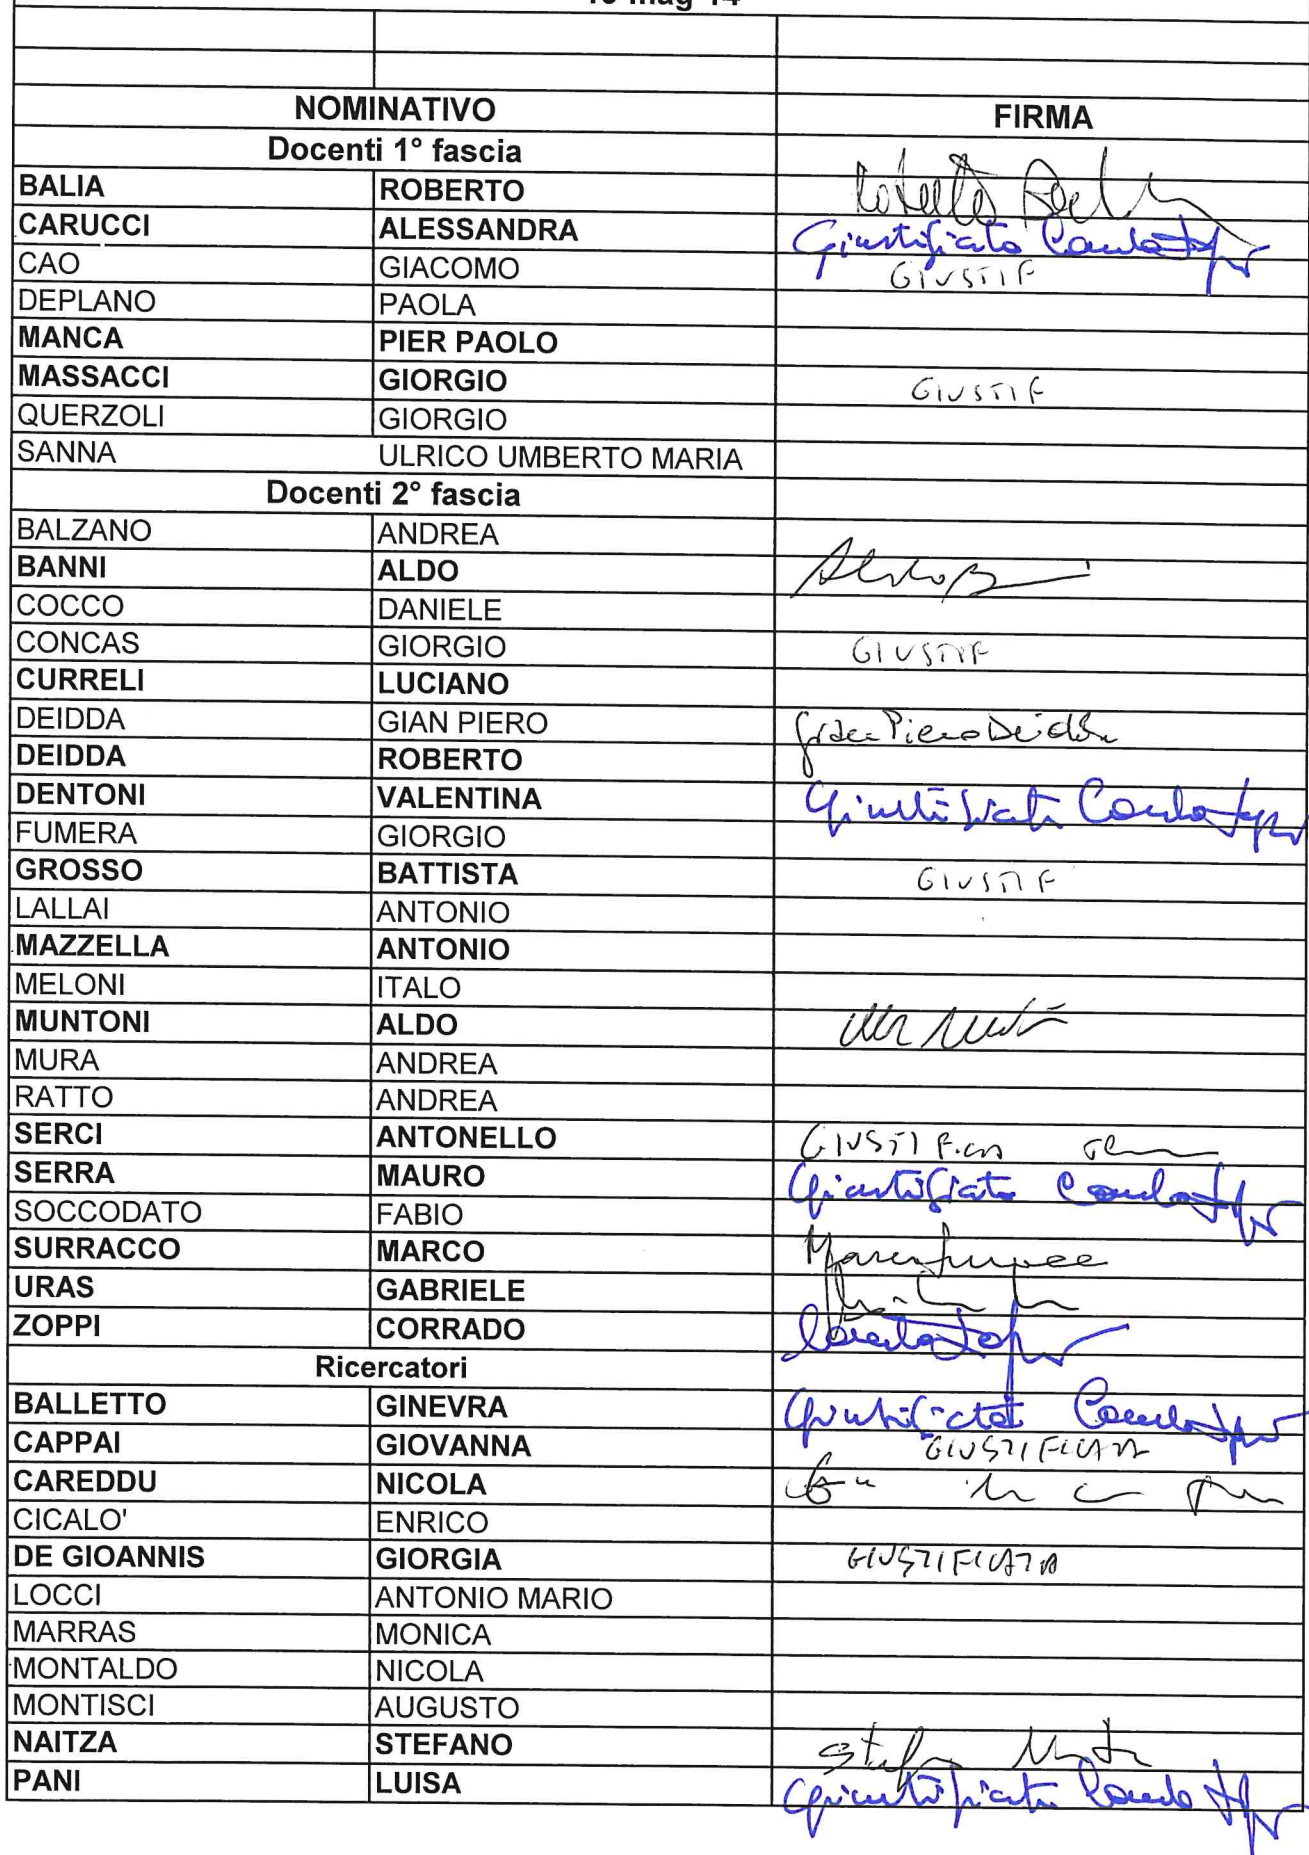 NOMINATIVO FIRMA
Docenti 1° fascia
BALIA ROBERTO
CARUCCI ALESSANDRA Giustificata
CAO GIACOMO GIUSTIF
DEPLANO PAOLA
MANCA PIER PAOLO
MASSACCI GIORGIO GIUSTIF
QUERZOLI GIORGIO
SANNA ULRICO UMBERTO MARIA
Docenti 2° fascia
BALZANO ANDREA
BANNI ALDO
COCCO DANIELE
CONCAS GIORGIO GIUSTIF
CURRELI LUCIANO
DEIDDA GIAN PIERO Gian Piero Deidda
DEIDDA ROBERTO
DENTONI VALENTINA Giustificata
FUMERA GIORGIO
GROSSO BATTISTA GIUSTIF
LALLAI ANTONIO
MAZZELLA ANTONIO
MELONI ITALO
MUNTONI ALDO
MURA ANDREA
RATTO ANDREA
SERCI ANTONELLO
SERRA MAURO Giustificato
SOCCODATO FABIO
SURRACCO MARCO
URAS GABRIELE
ZOPPI CORRADO
Ricercatori
BALLETTO GINEVRA Giustificata
CAPPAI GIOVANNA GIUSTIFICATA
CAREDDU NICOLA
CICALO' ENRICO
DE GIOANNIS GIORGIA GIUSTIFICATA
LOCCI ANTONIO MARIO
MARRAS MONICA
MONTALDO NICOLA
MONTISCI AUGUSTO
NAITZA STEFANO
PANI LUISA Giustificata